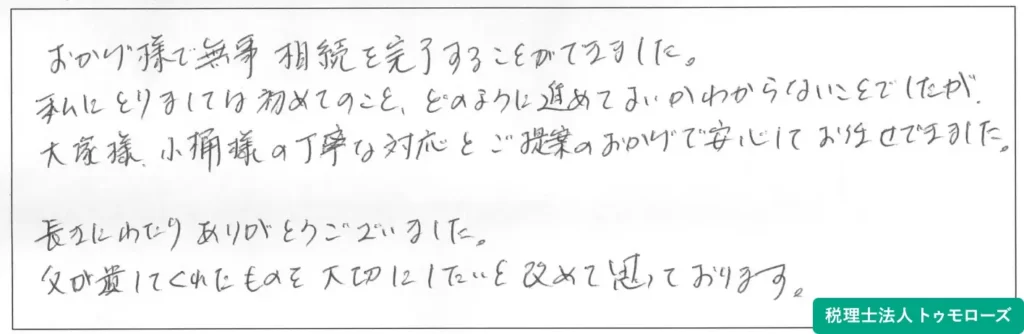 おかげ様で無事 相続を完了することができました。
私にとりましては初めてのこと、どのように進めてよいかわからないことでしたが、
大塚様、小桶様の丁寧な対応とご提案のおかげで安心してお任せできました。
長きにわたりありがとうございました。
父が遺してくれたものを大切にしたいと改めて思っております。
税理士法人 トゥモローズ